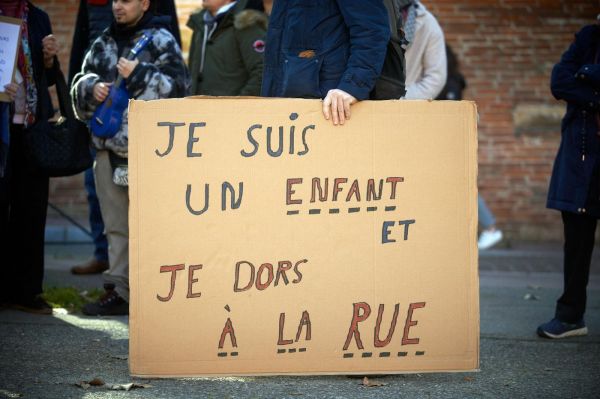 JE SUIS
UN ENFANT
ET
JE DORS
À LA RUE